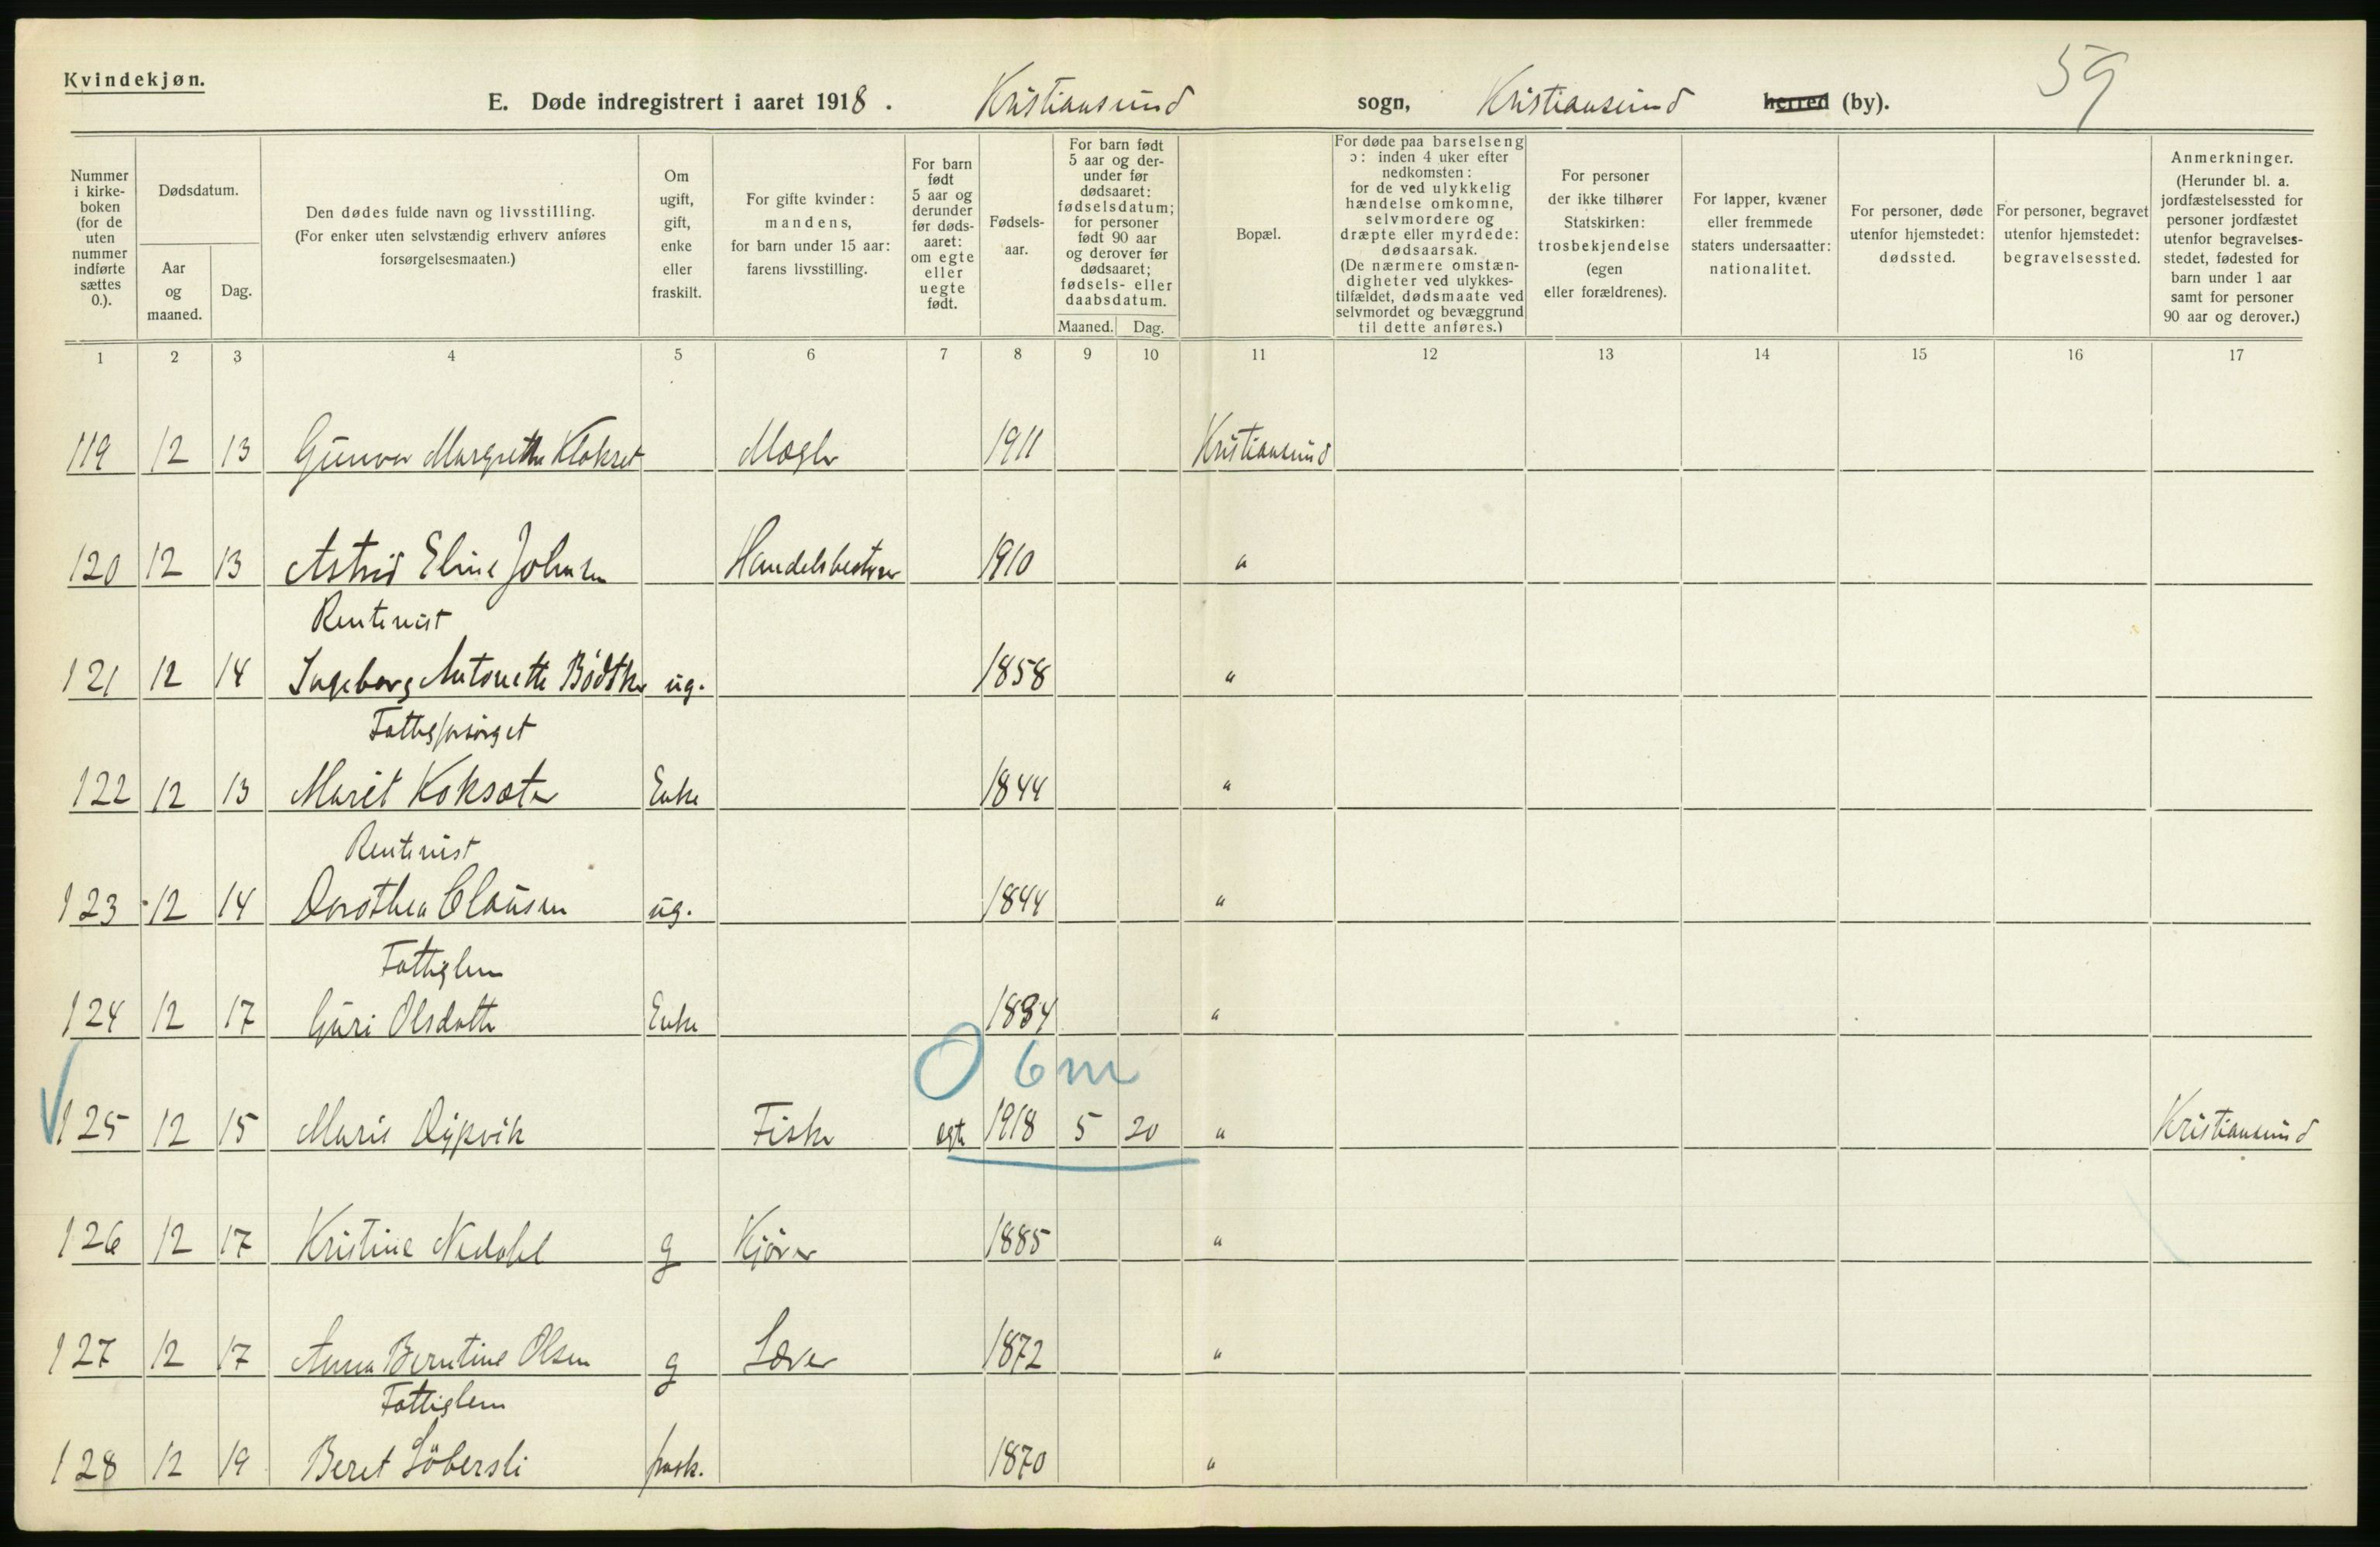 Kvindekjøn.
59
E. Døde indregistrert i aaret 1918. Kristiansund sogn, Kristiansund herred (by).
Nummer i kirke-boken (for de uten nummer indførte sættes 0.).
Dødsdatum.
Aar og maaned.
Dag.
Den dødes fulde navn og livsstilling. (For enker uten selvstændig erhverv anføres forsørgelsesmaaten.)
Om ugift, gift, enke eller fraskilt.
For gifte kvinder: mandens, for barn under 15 aar: farens livsstilling.
For barn født 5 aar og derunder før døds-aaret: om egte eller uegte født.
Fødsels-aar.
For barn født 5 aar og der-under før dødsaaret: fødselsdatum; for personer født 90 aar og derover før dødsaaret; fødsels- eller daabsdatum.
Maaned. Dag.
Bopæl.
For døde paa barselseng ɔ: inden 4 uker efter nedkomsten: for de ved ulykkelig hændelse omkomne, selvmordere og dræpte eller myrdede: dødsaarsak. (De nærmere omstæn-digheter ved ulykkes-tilfældet, dødsmaate ved selvmordet og bevæggrund til dette anføres.)
For personer der ikke tilhører Statskirken: trosbekjendelse (egen eller forældrenes).
For lapper, kvæner eller fremmede staters undersaatter: nationalitet.
For personer, døde utenfor hjemstedet: dødssted.
For personer, begravet utenfor hjemstedet: begravelsessted.
Anmerkninger. (Herunder bl. a. jordfæstelsessted for personer jordfæstet utenfor begravelses-stedet, fødested for barn under 1 aar samt for personer 90 aar og derover.)
1 2 3 4 5 6 7 8 9 10 11 12 13 14 15 16 17
119 12 13 Gunvor Margrethe Klokset Mægler 1911 Kristiansund
120 12 13 Astrid Eline Johnsen Handelsbestyrer 1910 "
Rentenist
121 12 14 Ingeborg Antonette Bödtker ug. 1858 "
Fattigforsørget
122 12 13 Marit Koksæter Enke 1844 "
Rentenist
123 12 14 Dorothea Clausen ug. 1844 "
Fattiglem
124 12 17 Guri Olsdatter Enke 1834 "
0 6m
125 12 15 Marie Dypvik Fisker ægte 1918 5 20 " Kristiansund
126 12 17 Kristine Nedahl g Kjører 1885 "
127 12 17 Anna Berntine Olsen g 1872 "
Fattiglem
128 12 19 Beret frask. 1870 "